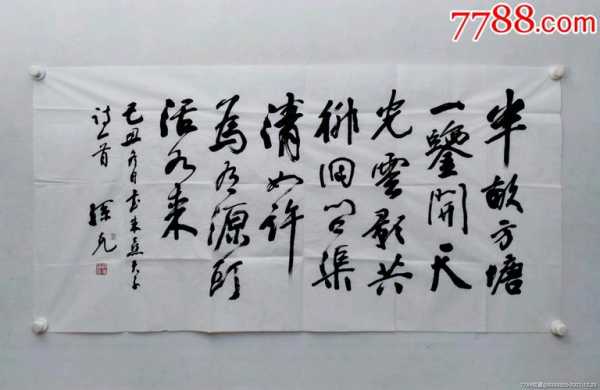 7788.com
半畝方塘
一鑒開天
光雲影共
徘徊问渠
清如許
為有源頭
活水来
己丑冬日書朱熹夫子
詩一首